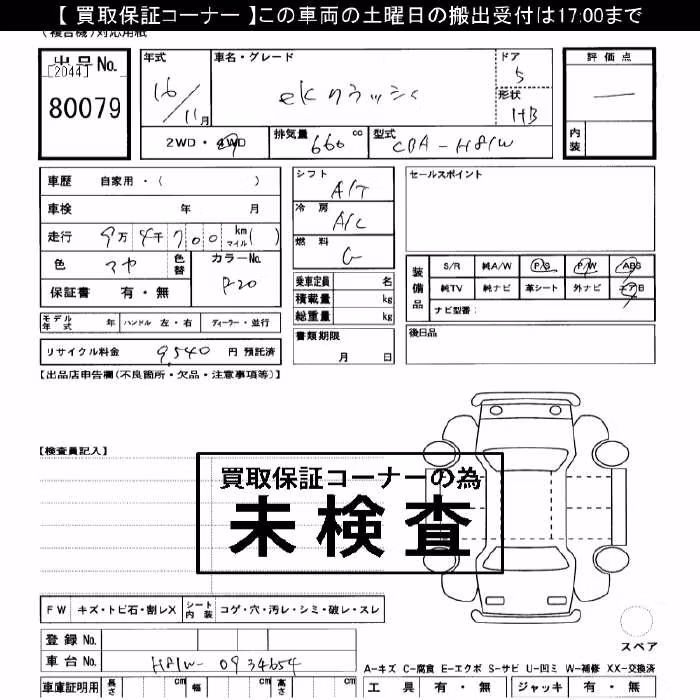 【 買取保証コーナー 】この車両の土曜日の搬出受付は17:00まで
(複合機)対応用紙
出品No. [2044] 80079
年式 16/11月
車名・グレード eKクラッシィ
ドア 5
形状 HB
評価点 —
内装
2WD・4WD
排気量 660 cc
型式 CBA-H81W
車歴 自家用・( )
車検 年 月
走行 9万4千700 km マイル ( )
色 シロ 色替
カラーNo. P20
保証書 有・無
シフト A/T
冷房 A/C
燃料 G
乗車定員 名
積載量 kg
総重量 kg
書類期限 月 日
セールスポイント
装備品 S/R 純A/W P/S P/W ABS
純TV 純ナビ 革シート 外ナビ エアB
ナビ型番:
後日品
モデル年式 年 ハンドル 左・右 ディーラー・並行
リサイクル料金 9,540 円 預託済
【出品店申告欄(不良箇所・欠品・注意事項等)】
【検査員記入】
買取保証コーナーの為
未検査
FW キズ・トビ石・割レX シート内装 コゲ・穴・汚レ・シミ・破レ・スレ
登録No.
車台No. H81W-0934654
車庫証明用 長さ cm 幅 cm 高さ cm
スペア
A-キズ C-腐食 E-エクボ S-サビ U-凹ミ W-補修 XX-交換済
工具 有・無 ジャッキ 有・無